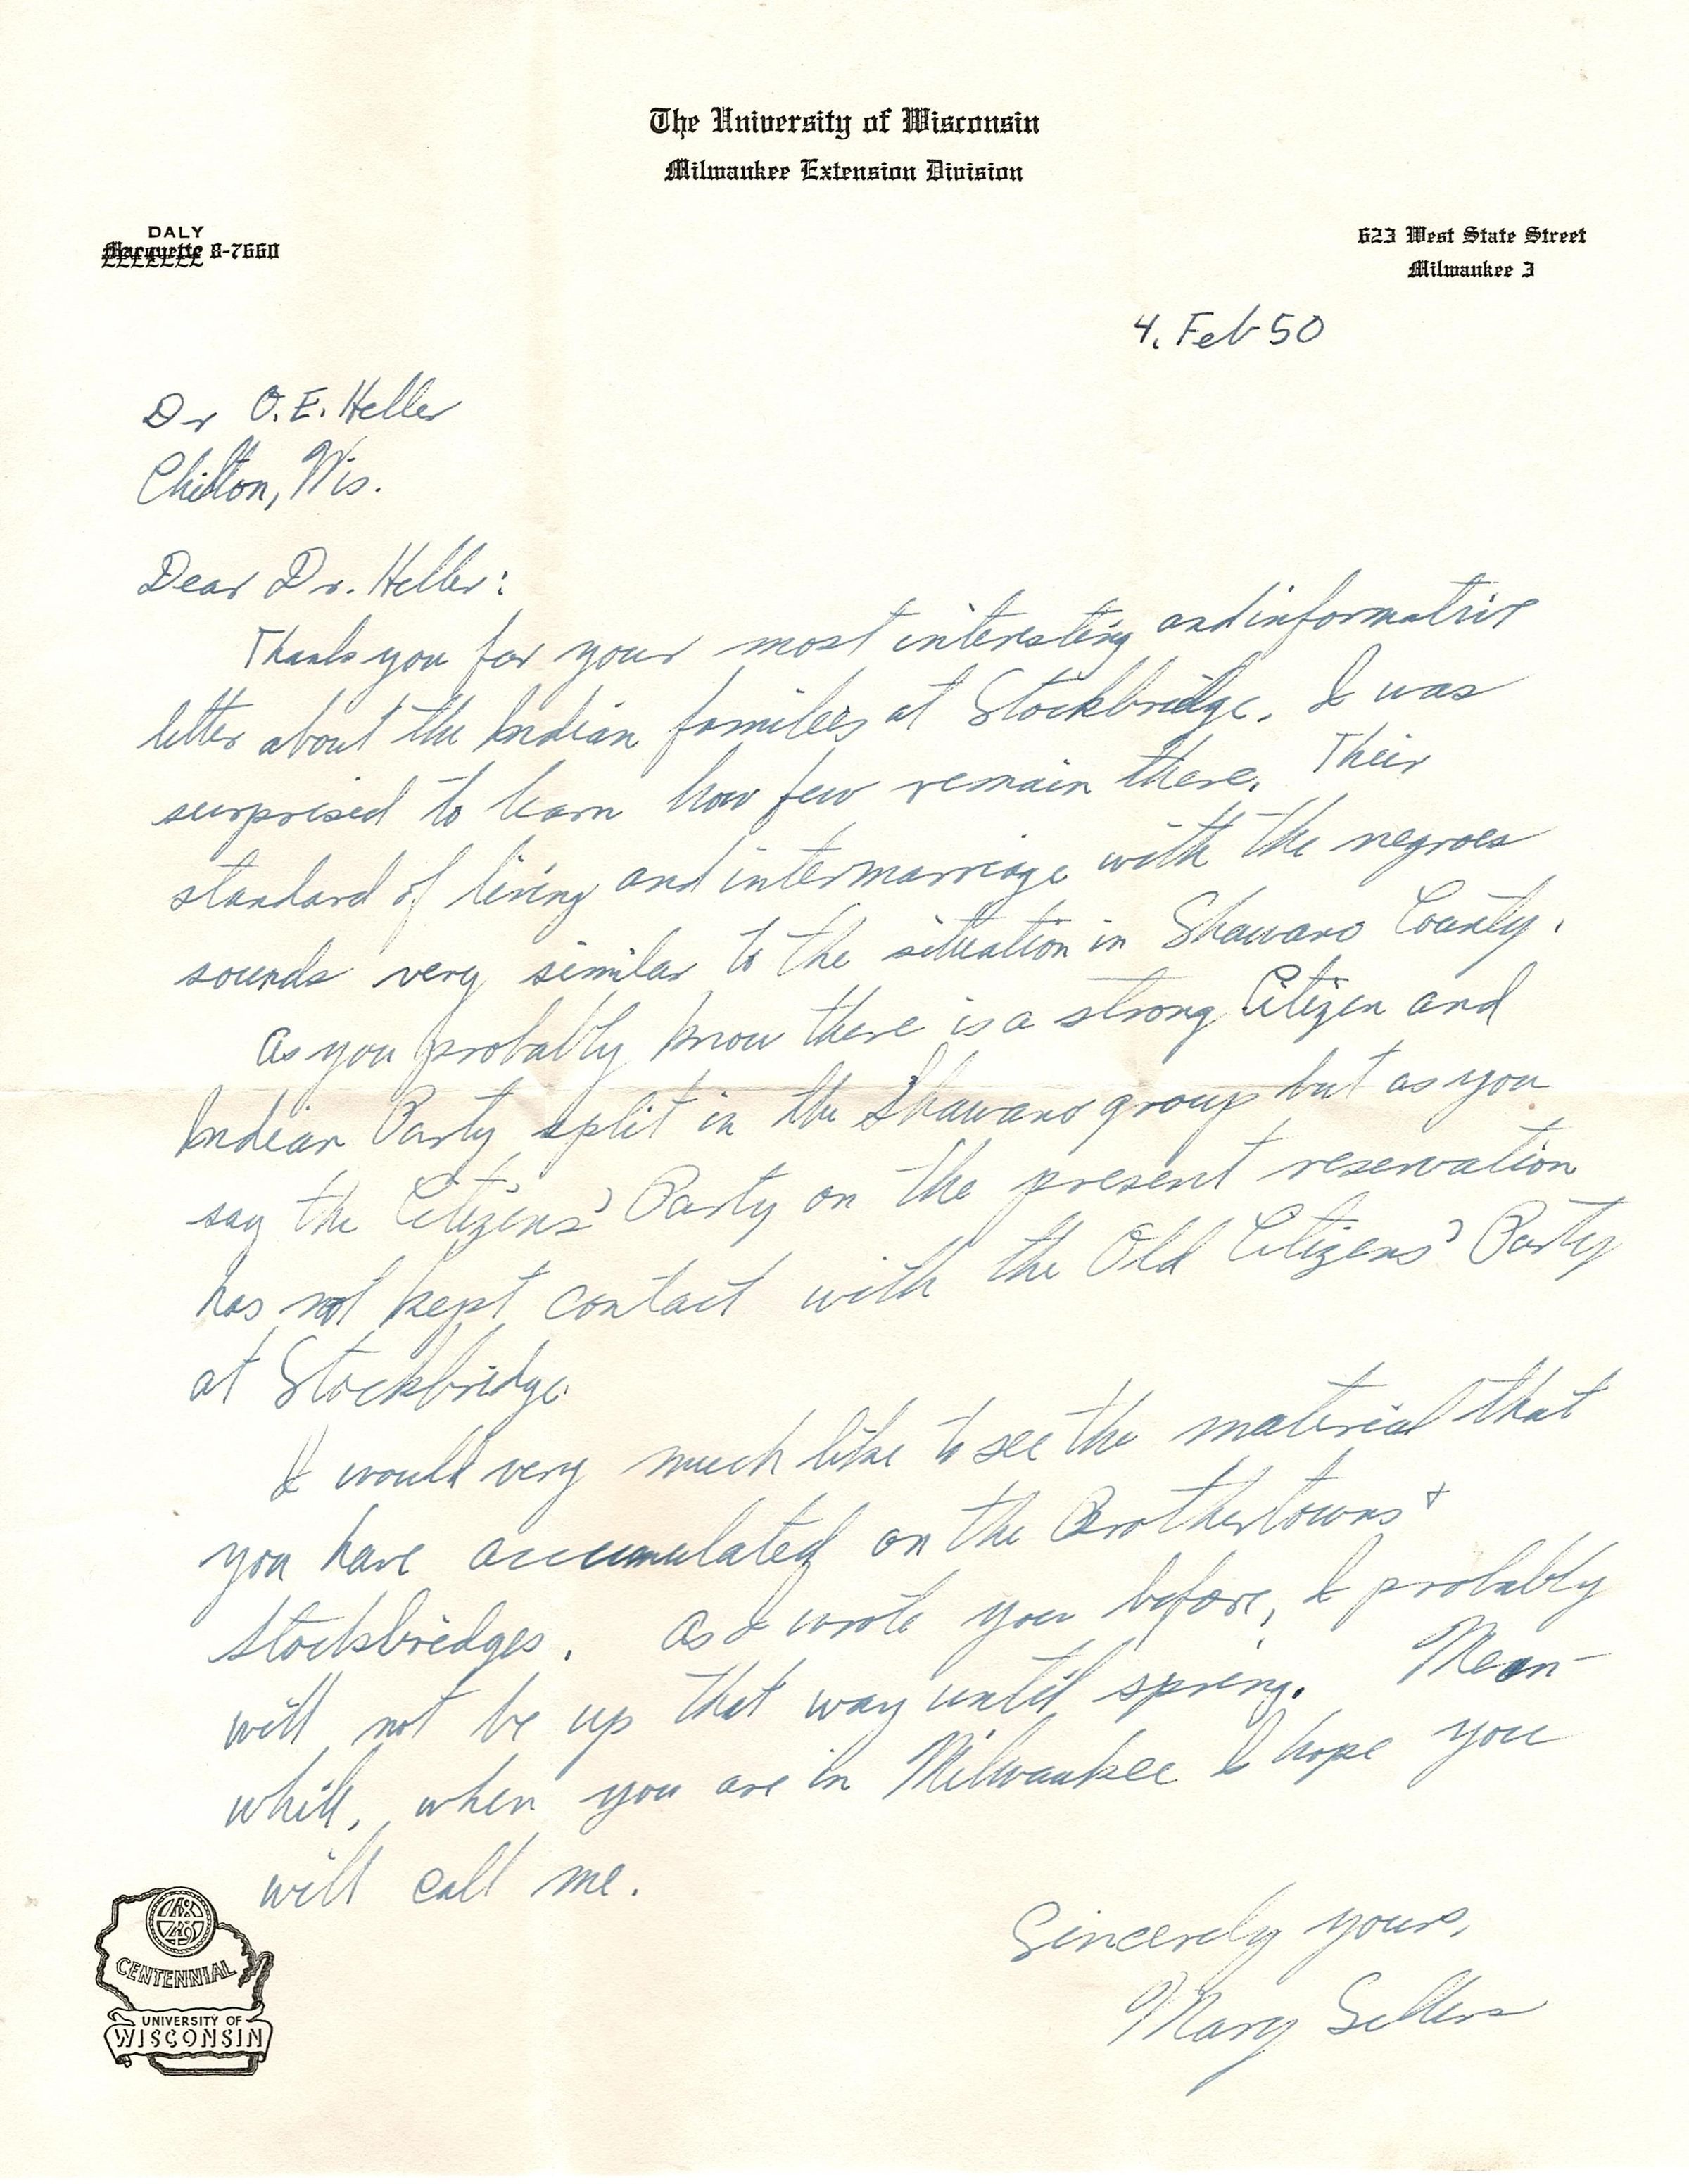 The University of Wisconsin
Milwaukee Extension Division
DALY
Marquette 8-7660
623 West State Street
Milwaukee 3
4. Feb 50
Dr O. E. Heller
Chilton, Wis.
Dear Dr. Heller:
Thank you for your most interesting and informative
letter about the Indian families at Stockbridge. I was
surprised to learn how few remain there. Their
standard of living and intermarriage with the negroes
sounds very similar to the situation in Shawano County.
As you probably know there is a strong Citizen and
Indian Party split in the Shawano group but as you
say the Citizens' Party on the present reservation
has not kept contact with the Old Citizens' Party
at Stockbridge.
I would very much like to see the material that
you have accumulated on the Brothertowns +
Stockbridges. As I wrote you before, I probably
will not be up that way until spring. Mean-
while, when you are in Milwaukee I hope you
will call me.
Sincerely yours,
Mary Sellers
18
49
CENTENNIAL
UNIVERSITY OF
WISCONSIN